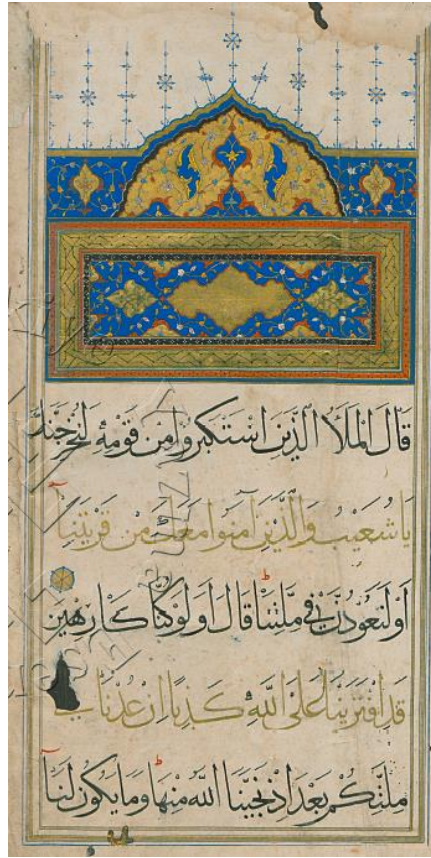 قَالَ الْمَلَأُ الَّذِينَ اسْتَكْبَرُوا مِنْ قَوْمِهِ لَنُخْرِجَنَّكَ
يَا شُعَيْبُ وَالَّذِينَ آمَنُوا مَعَكَ مِنْ قَرْيَتِنَا
أَوْ لَتَعُودُنَّ فِي مِلَّتِنَا قَالَ أَوَلَوْ كُنَّا كَارِهِينَ
قَدِ افْتَرَيْنَا عَلَى اللَّهِ كَذِبًا إِنْ عُدْنَا فِي
مِلَّتِكُمْ بَعْدَ إِذْ نَجَّيْنَا اللَّهُ مِنْهَا وَمَا يَكُونُ لَنَا